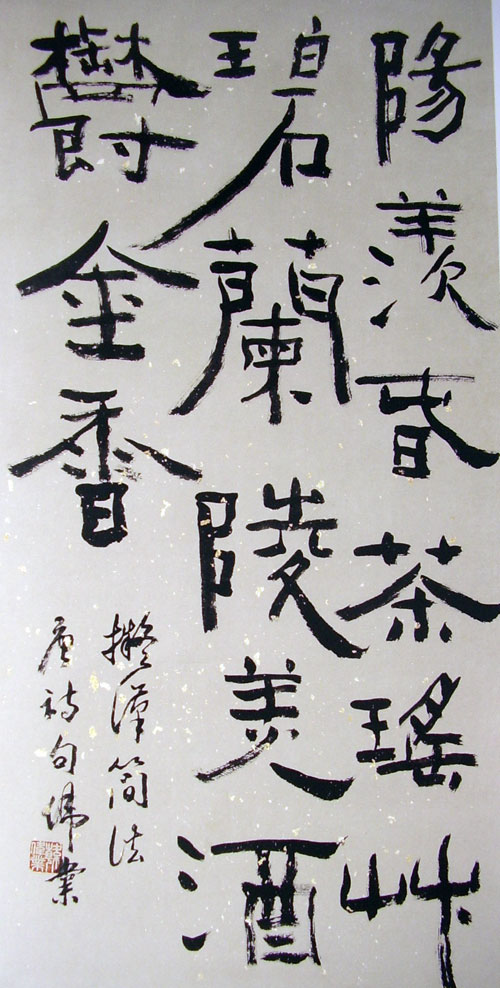 陽羨旾茶瑤艸
碧蘭陵美酒
鬱金香
擬漢簡法
唐詩句偉業